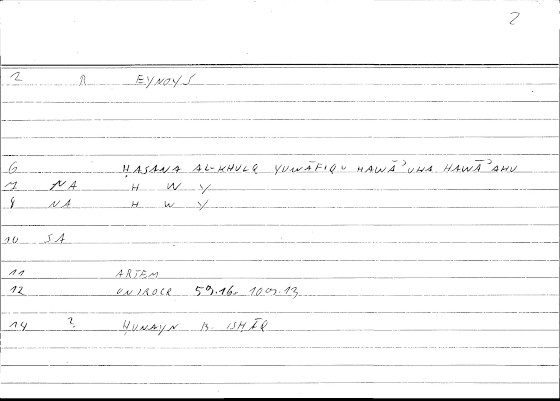 2
2 R EYNOYS
6 ḤASANA AL-KHULQ YUWĀFIQU HAWĀʾUHA HAWĀʾAHU
7 NA H W Y
8 NA H W Y
10 SA
11 ARTEM
12 59.16
14 ? ḤUNAYN B. ISḤĀQ